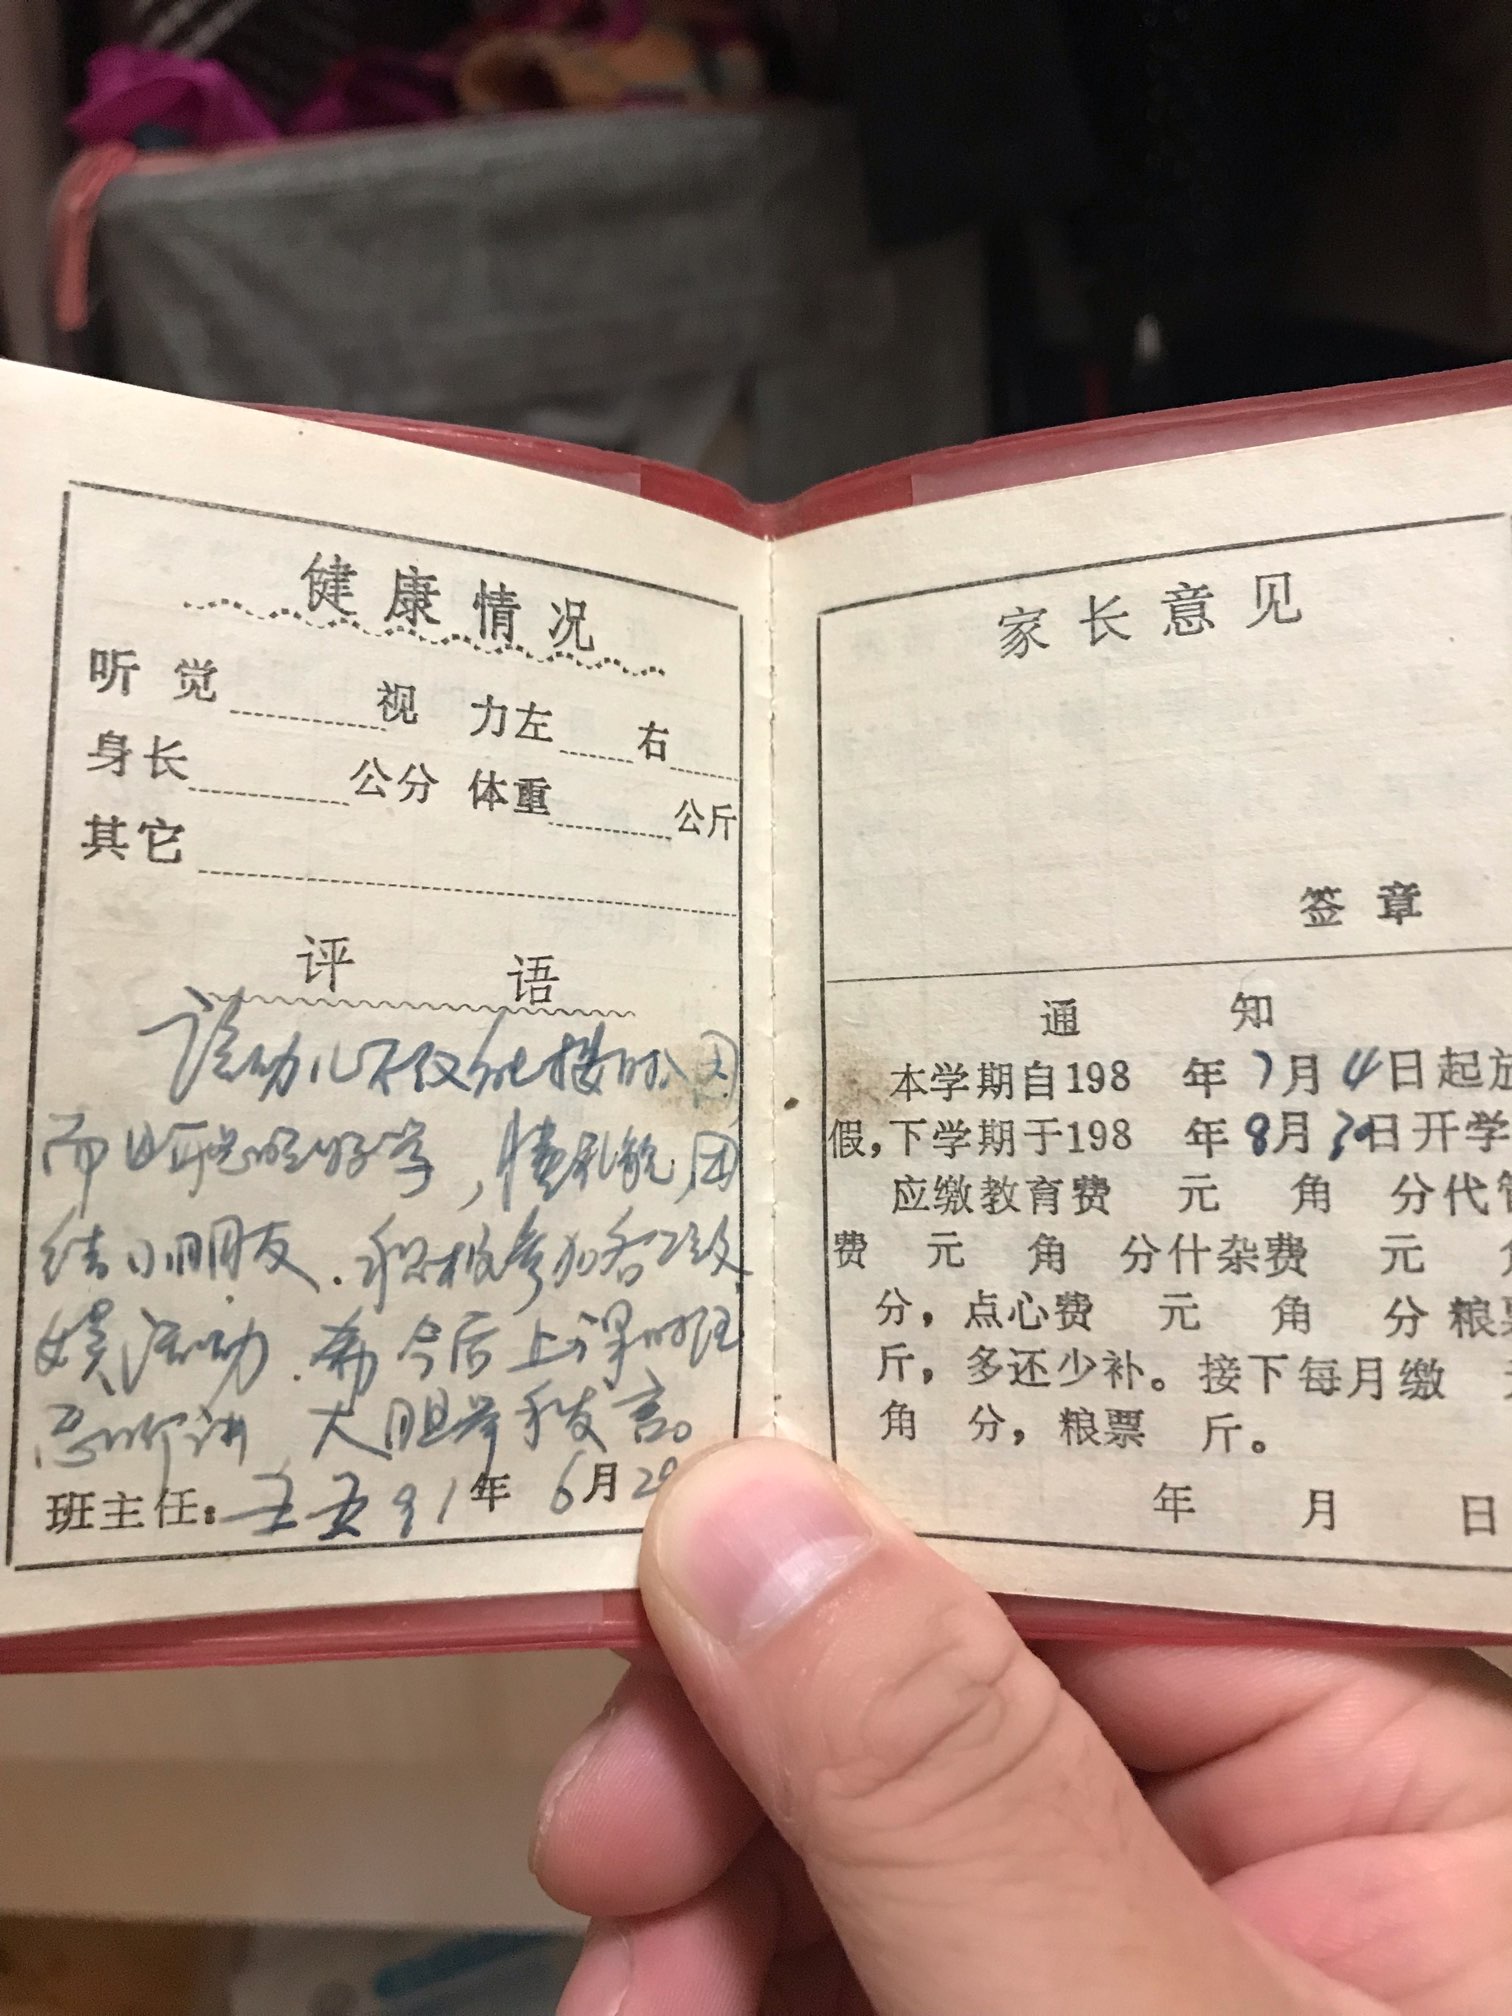 健康情况
听觉 视 力左 右
身长 公分 体重 公斤
其它
评 语
该幼儿不仅能按时入园
而且聪明好学,懂礼貌,团
结小朋友.积极参加各项文
娱活动.希今后上课时注
意听讲 大胆举手发言。
班主任: 91年 6月2
家长意见
签章
通 知
本学期自198 年7月4日起放
假,下学期于198 年8月30日开学
应缴教育费 元 角 分代管
费 元 角 分什杂费 元 角
分,点心费 元 角 分粮票
斤,多还少补。接下每月缴
角 分,粮票 斤。
年 月 日